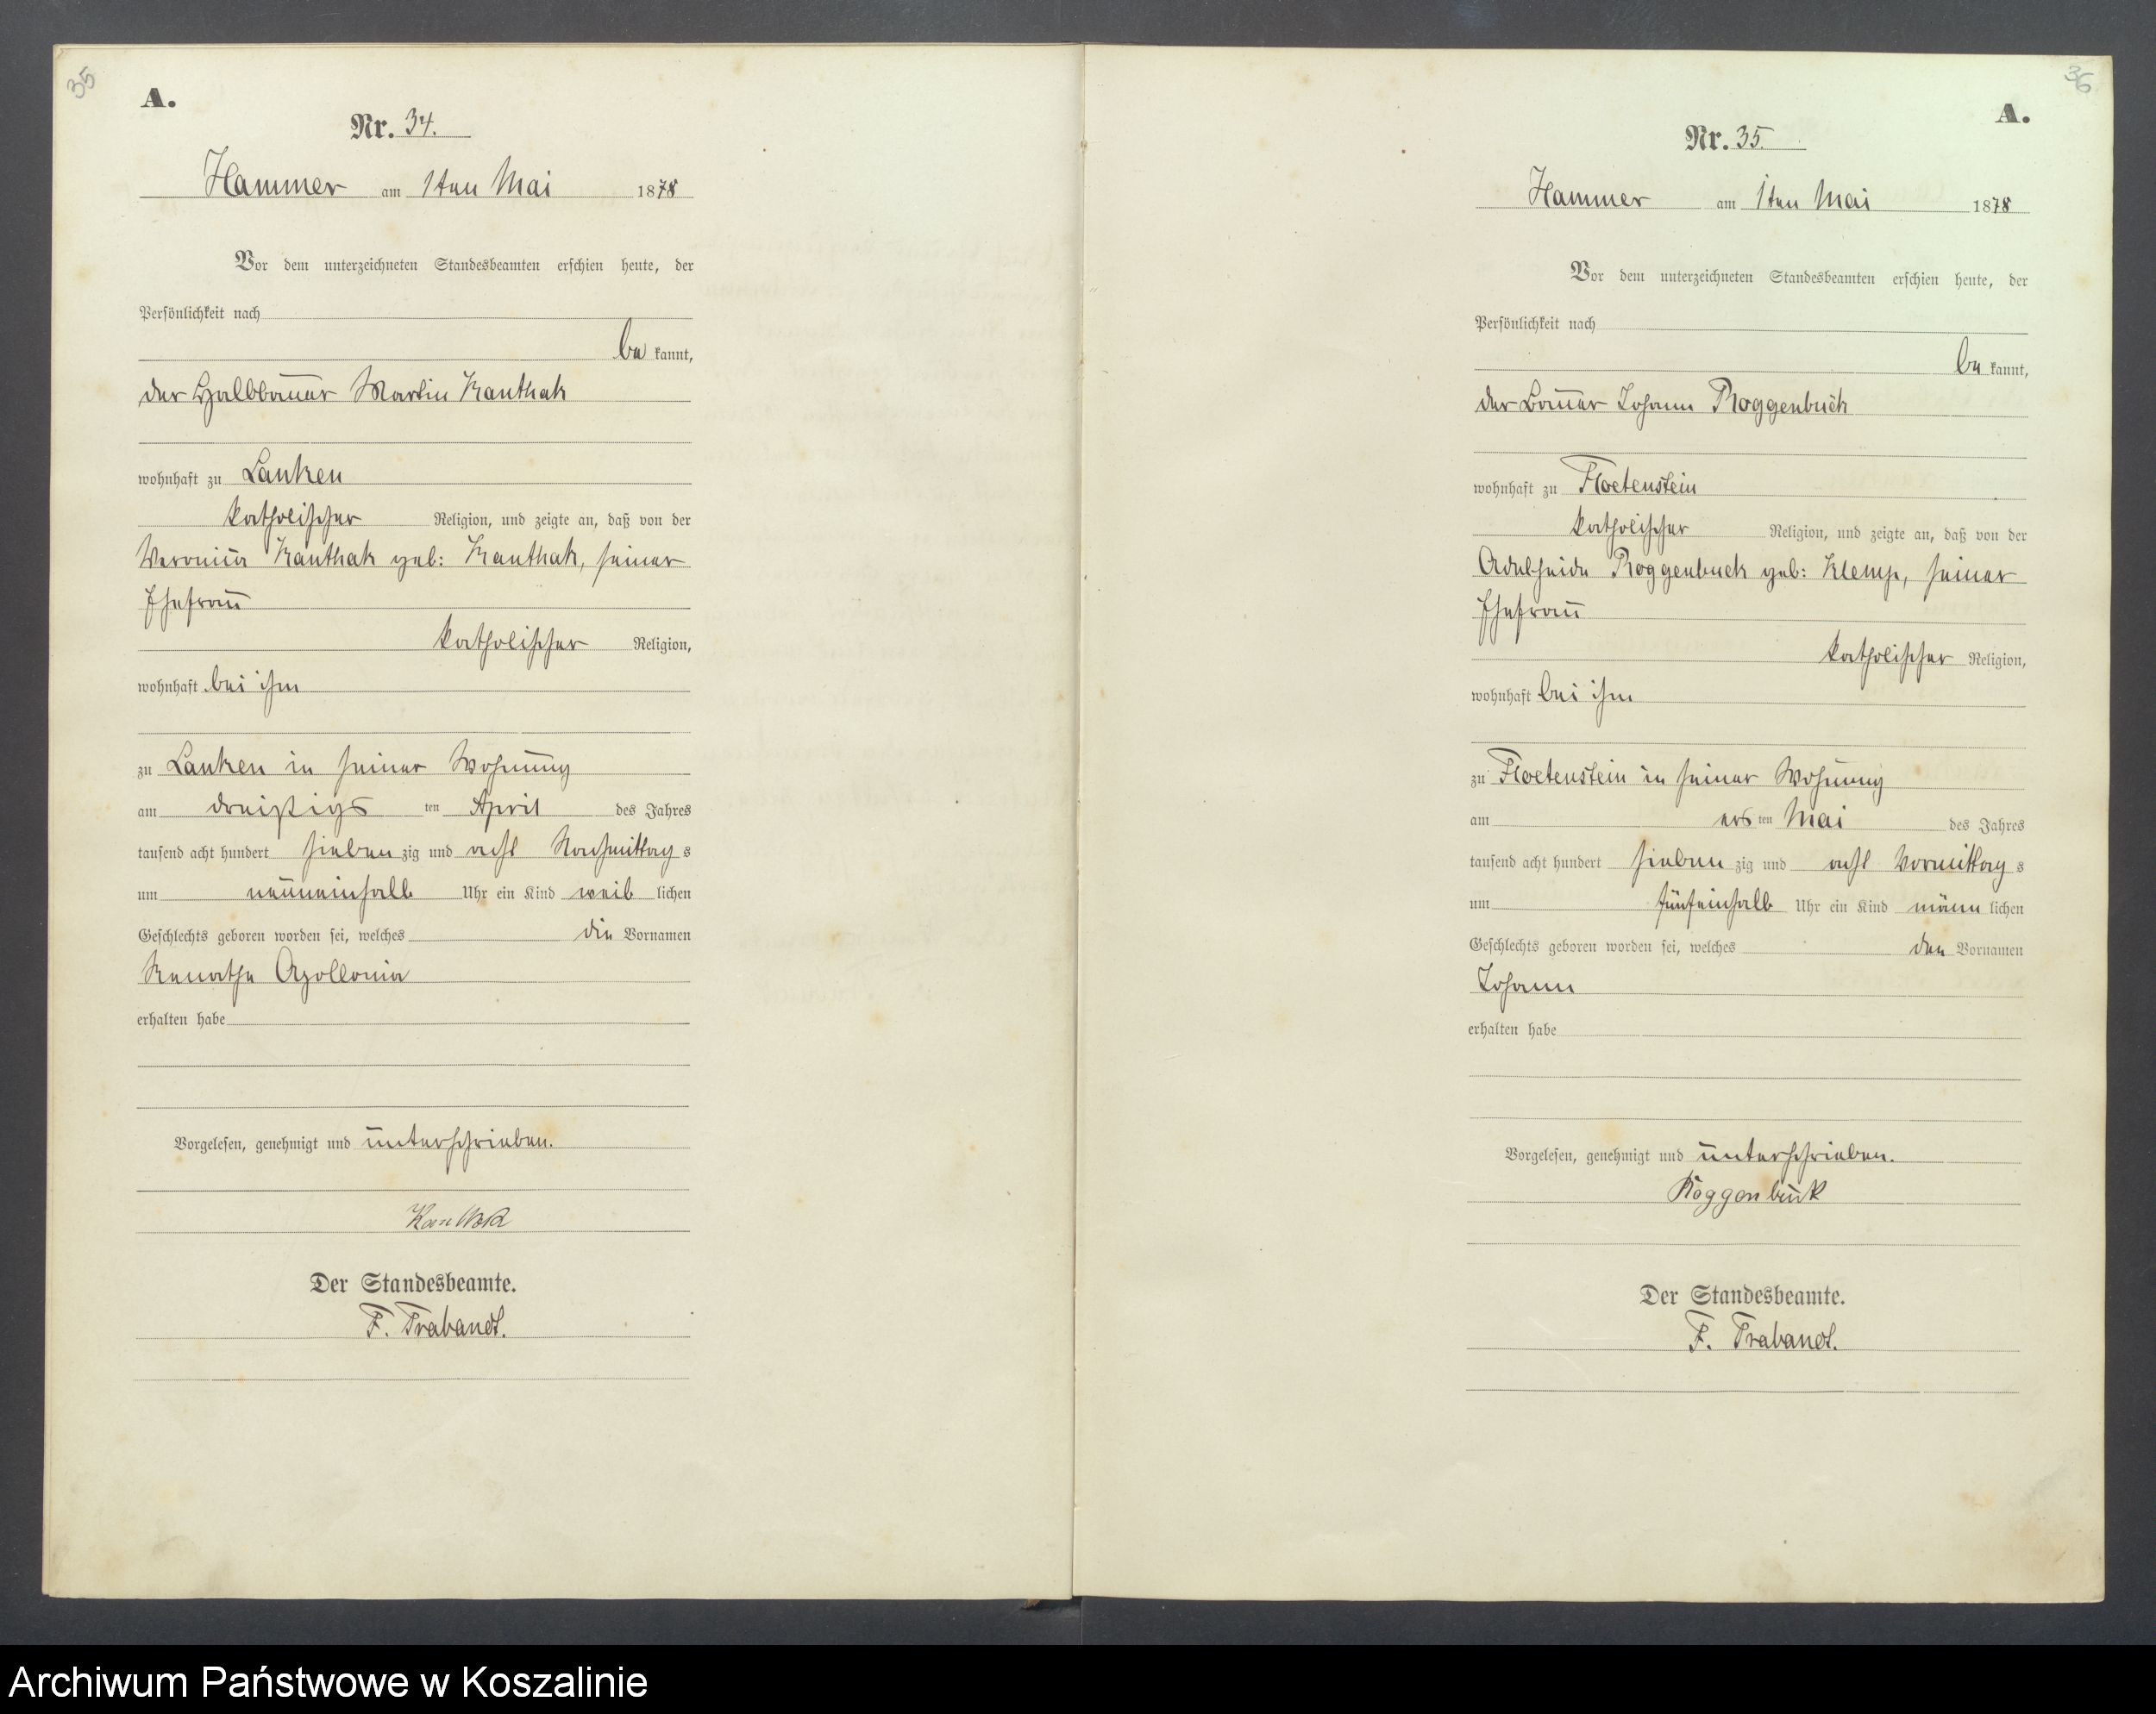 35
A.
Nr. 34.
Hammer am 1ten Mai 1878
Vor dem unterzeichneten Standesbeamten erschien heute, der
Persönlichkeit nach
be kannt,
der Halbbauer Martin Kanthak
wohnhaft zu Lanken
katholischer Religion, und zeigte an, daß von der
Veronica Kanthak geb: Kanthak, seiner
Ehefrau
katholischer Religion,
wohnhaft bei ihm
zu Lanken in seiner Wohnung
am dreißigs ten April des Jahres
tausend acht hundert sieben zig und acht Nachmittag s
um neuneinhalb Uhr ein Kind weib lichen
Geschlechts geboren worden sei, welches die Vornamen
Renathe Apollonia
erhalten habe
Vorgelesen, genehmigt und unterschrieben.
Kanthak
Der Standesbeamte.
F. Trabandt.
36
A.
Nr. 35.
Hammer am 1ten Mai 1878
Vor dem unterzeichneten Standesbeamten erschien heute, der
Persönlichkeit nach
be kannt,
der Bauer Johann Roggenbuck
wohnhaft zu Floetenstein
katholischer Religion, und zeigte an, daß von der
Adelheide Roggenbuck geb: Klemp, seiner
Ehefrau
katholischer Religion,
wohnhaft bei ihm
zu Floetenstein in seiner Wohnung
am ers ten Mai des Jahres
tausend acht hundert sieben zig und acht Vormittag s
um fünfeinhalb Uhr ein Kind männ lichen
Geschlechts geboren worden sei, welches den Vornamen
Johann
erhalten habe
Vorgelesen, genehmigt und unterschrieben.
Roggenbuk
Der Standesbeamte.
F. Trabandt.
Archiwum Państwowe w Koszalinie